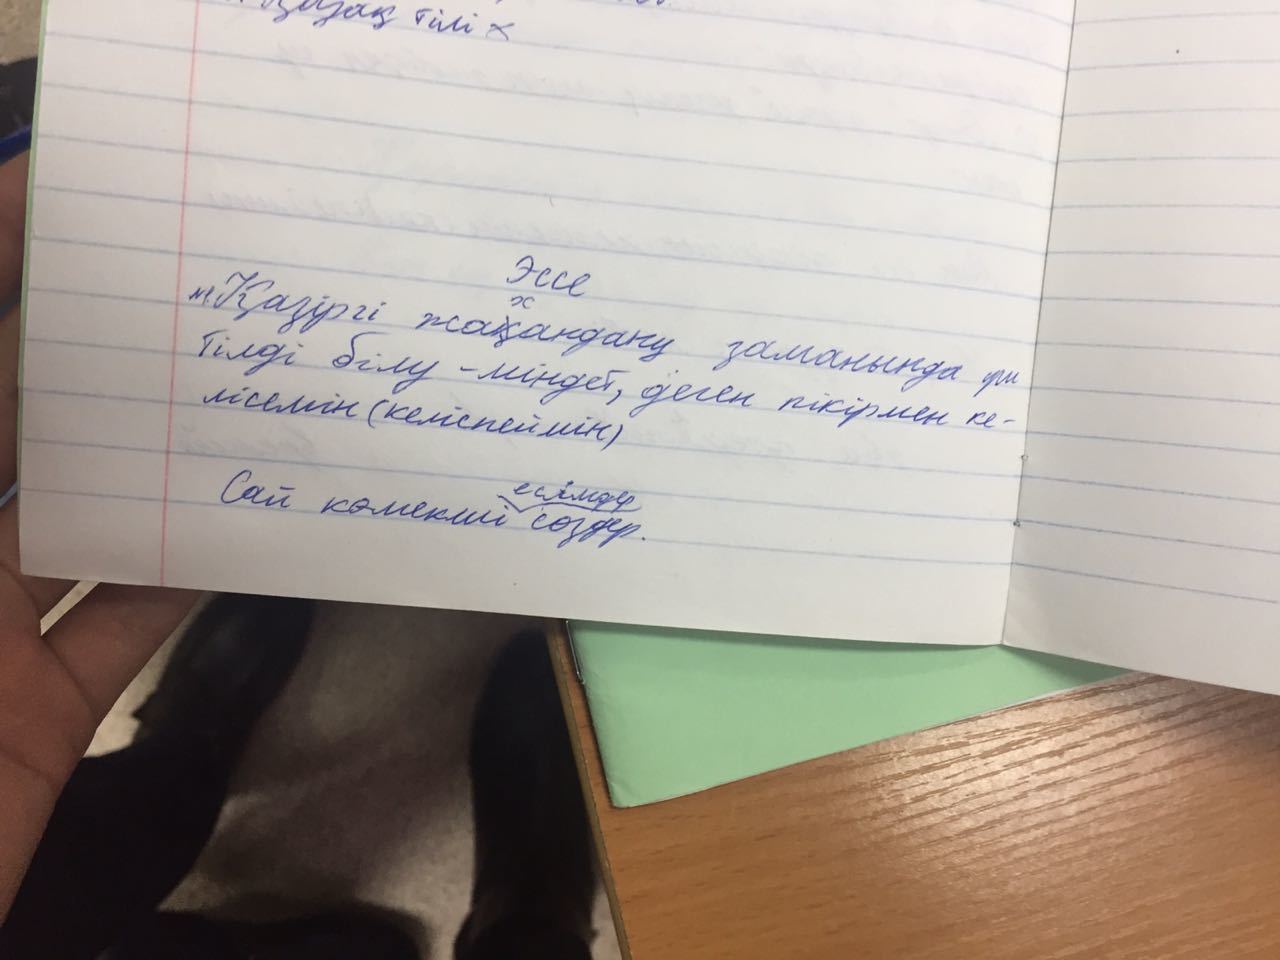 тілі х
Эссе
Қазіргі жаһандану заманында үш
тілді білу - міндет, деген пікірмен ке-
лісемін (келіспеймін)
Сай көмекші есімдер сөздер.